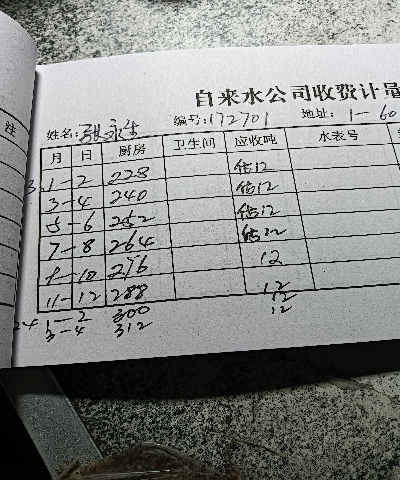 自来水公司收费计量
姓名: 张永生 编号: 172701 地址: 1-60
注
月 日 厨房 卫生间 应收吨 水表号
3. 1-2 228 估12
3-4 240 估12
5-6 252 估12
7-8 264 估12
9-10 276 12
11-12 288 12
24 1-2 300 12
3-4 312 12